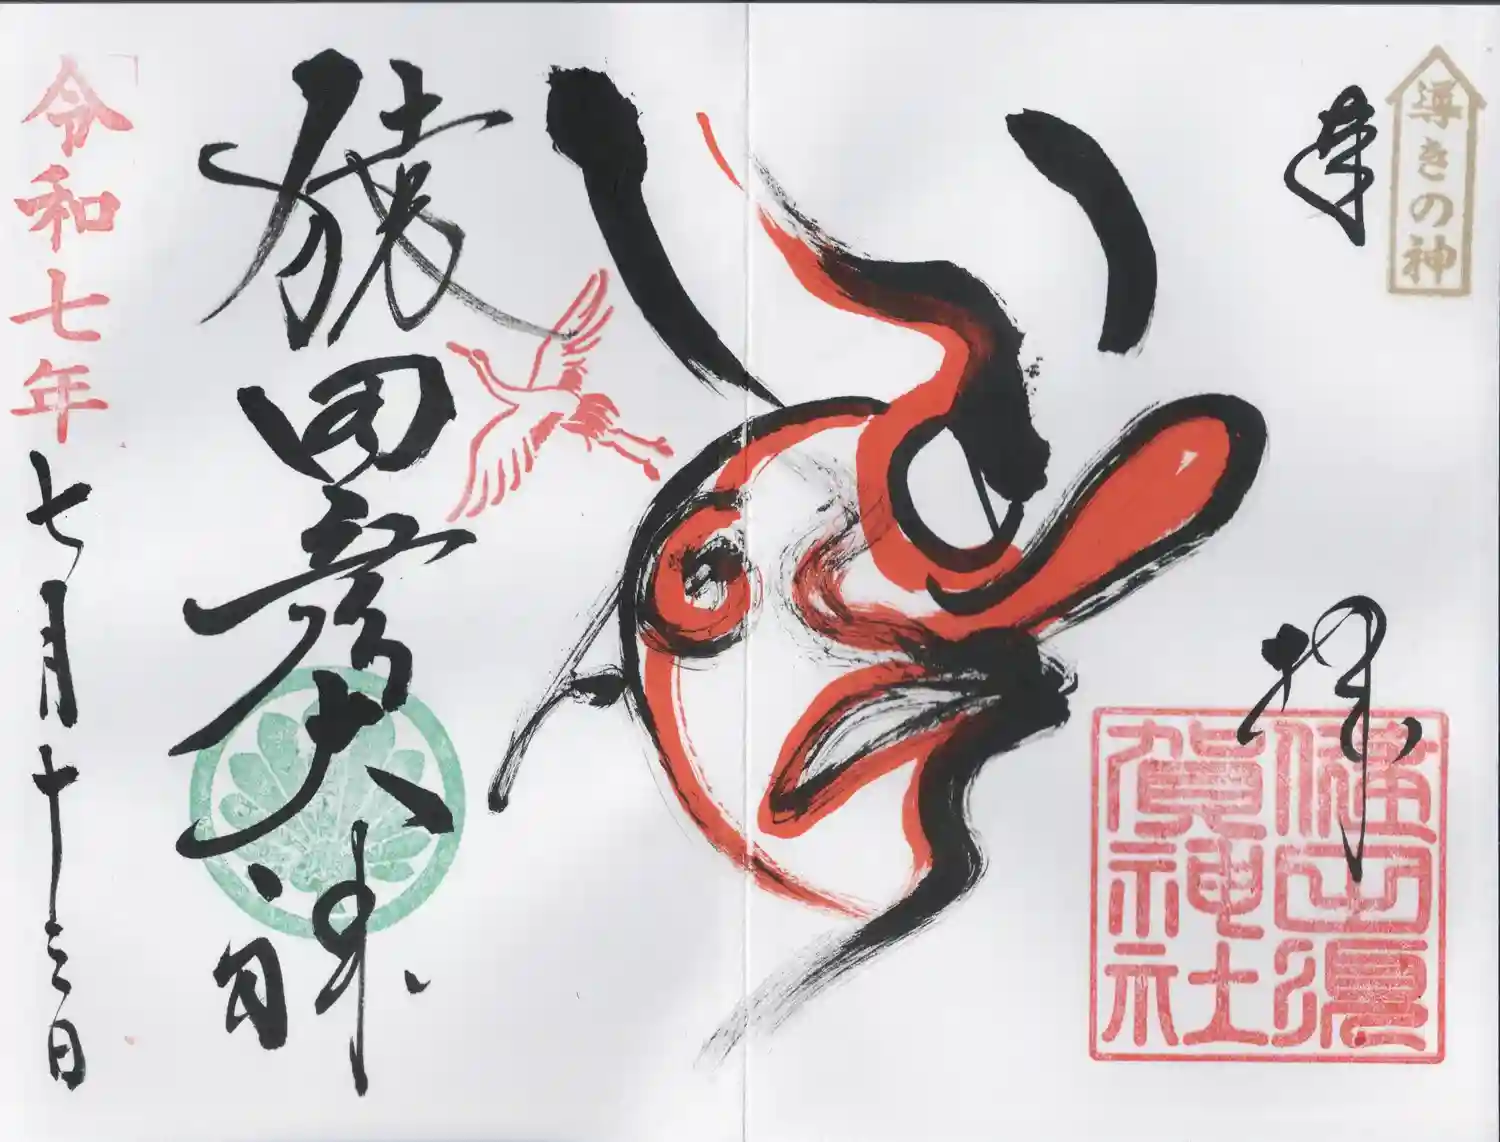 導きの神
奉拝
須賀神社
猿田彦大神
令和七年七月十三日